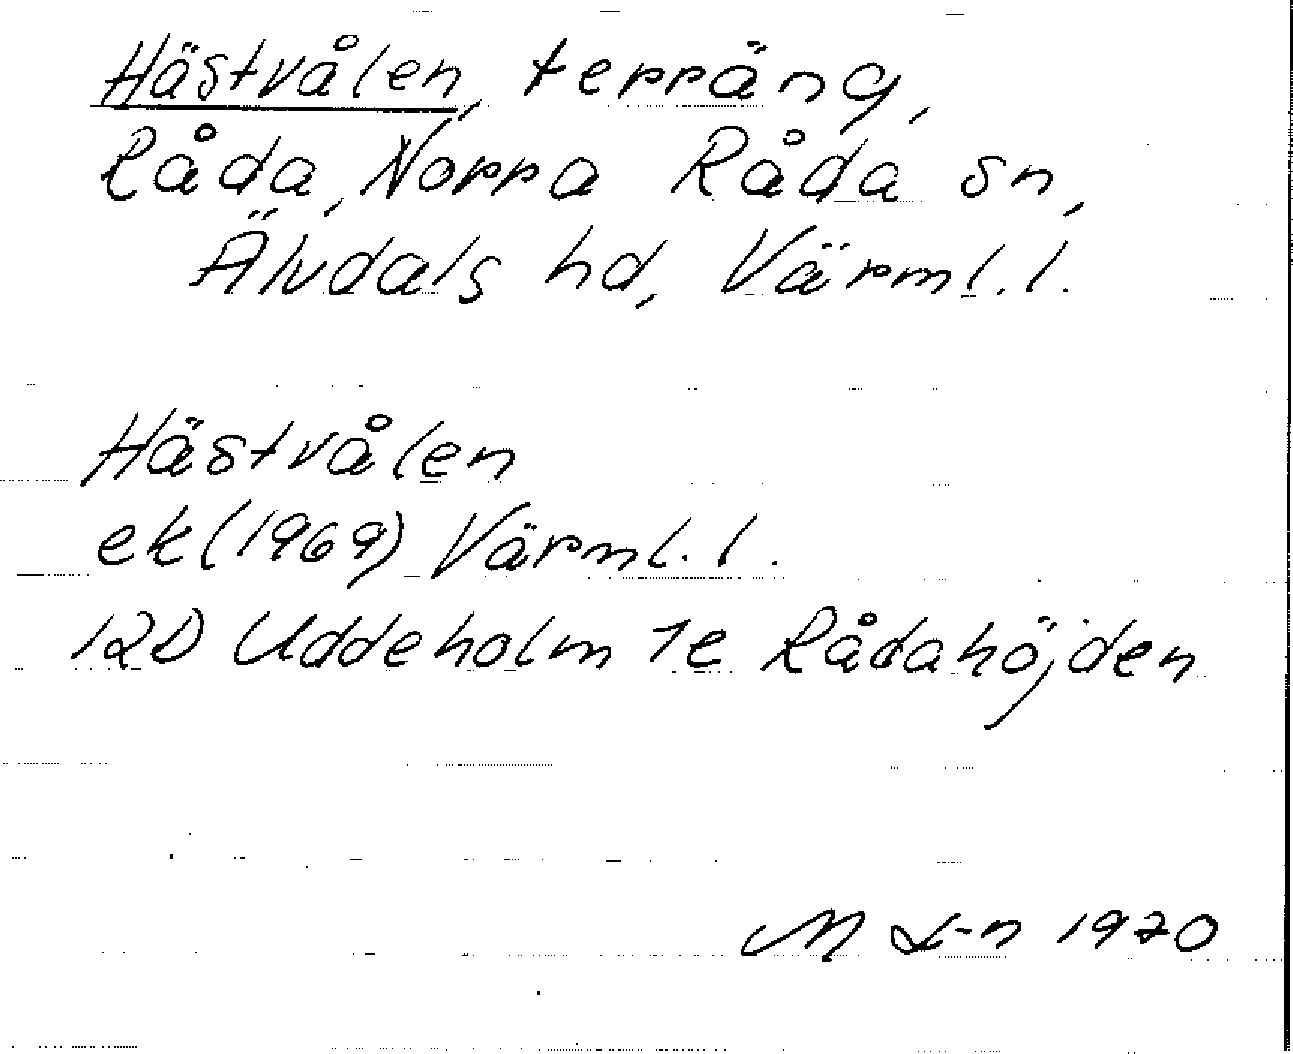 Hästvålen, terräng,
Råda, Norra Råda sn,
Älvdals hd, Värml. l.
Hästvålen
ek (1969) Värml. l.
12D Uddeholm 1e Rådahöjden
M L-n 1970